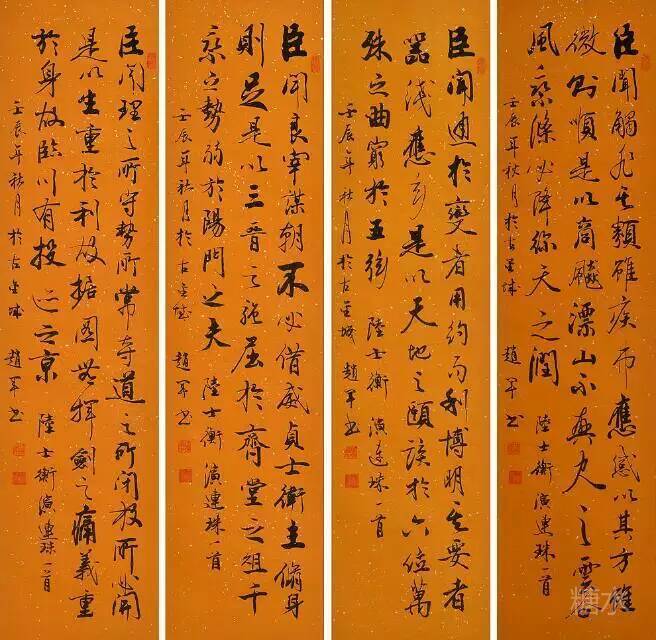 臣聞觸非其類雖疾弗應感以其方雖
微則順是以商飈漂山不興盈尺之雲谷
風乘條必降彌天之潤 陸士衡演連珠一首
壬辰年秋月於古金城 趙軍書
臣聞通於變者用約而利博明其要者
器淺應玄是以天地之賾該於六位萬
殊之曲窮於五絃 陸士衡演連珠一首
壬辰年秋月於古金城 趙軍書
臣聞良宰謀朝不必借威貞士衛主脩身
則足是以三晉之強屈於齊堂之俎千
乘之勢弱於陽門之夫 陸士衡演連珠一首
壬辰年秋月於古金城 趙軍書
臣聞理之所守勢所常奪道之所閉權所必開
是以生重於利故據圖無揮劍之痛義重
於身故臨川有投迹之哀 陸士衡演連珠一首
壬辰年秋月於古金城 趙軍書
糖水